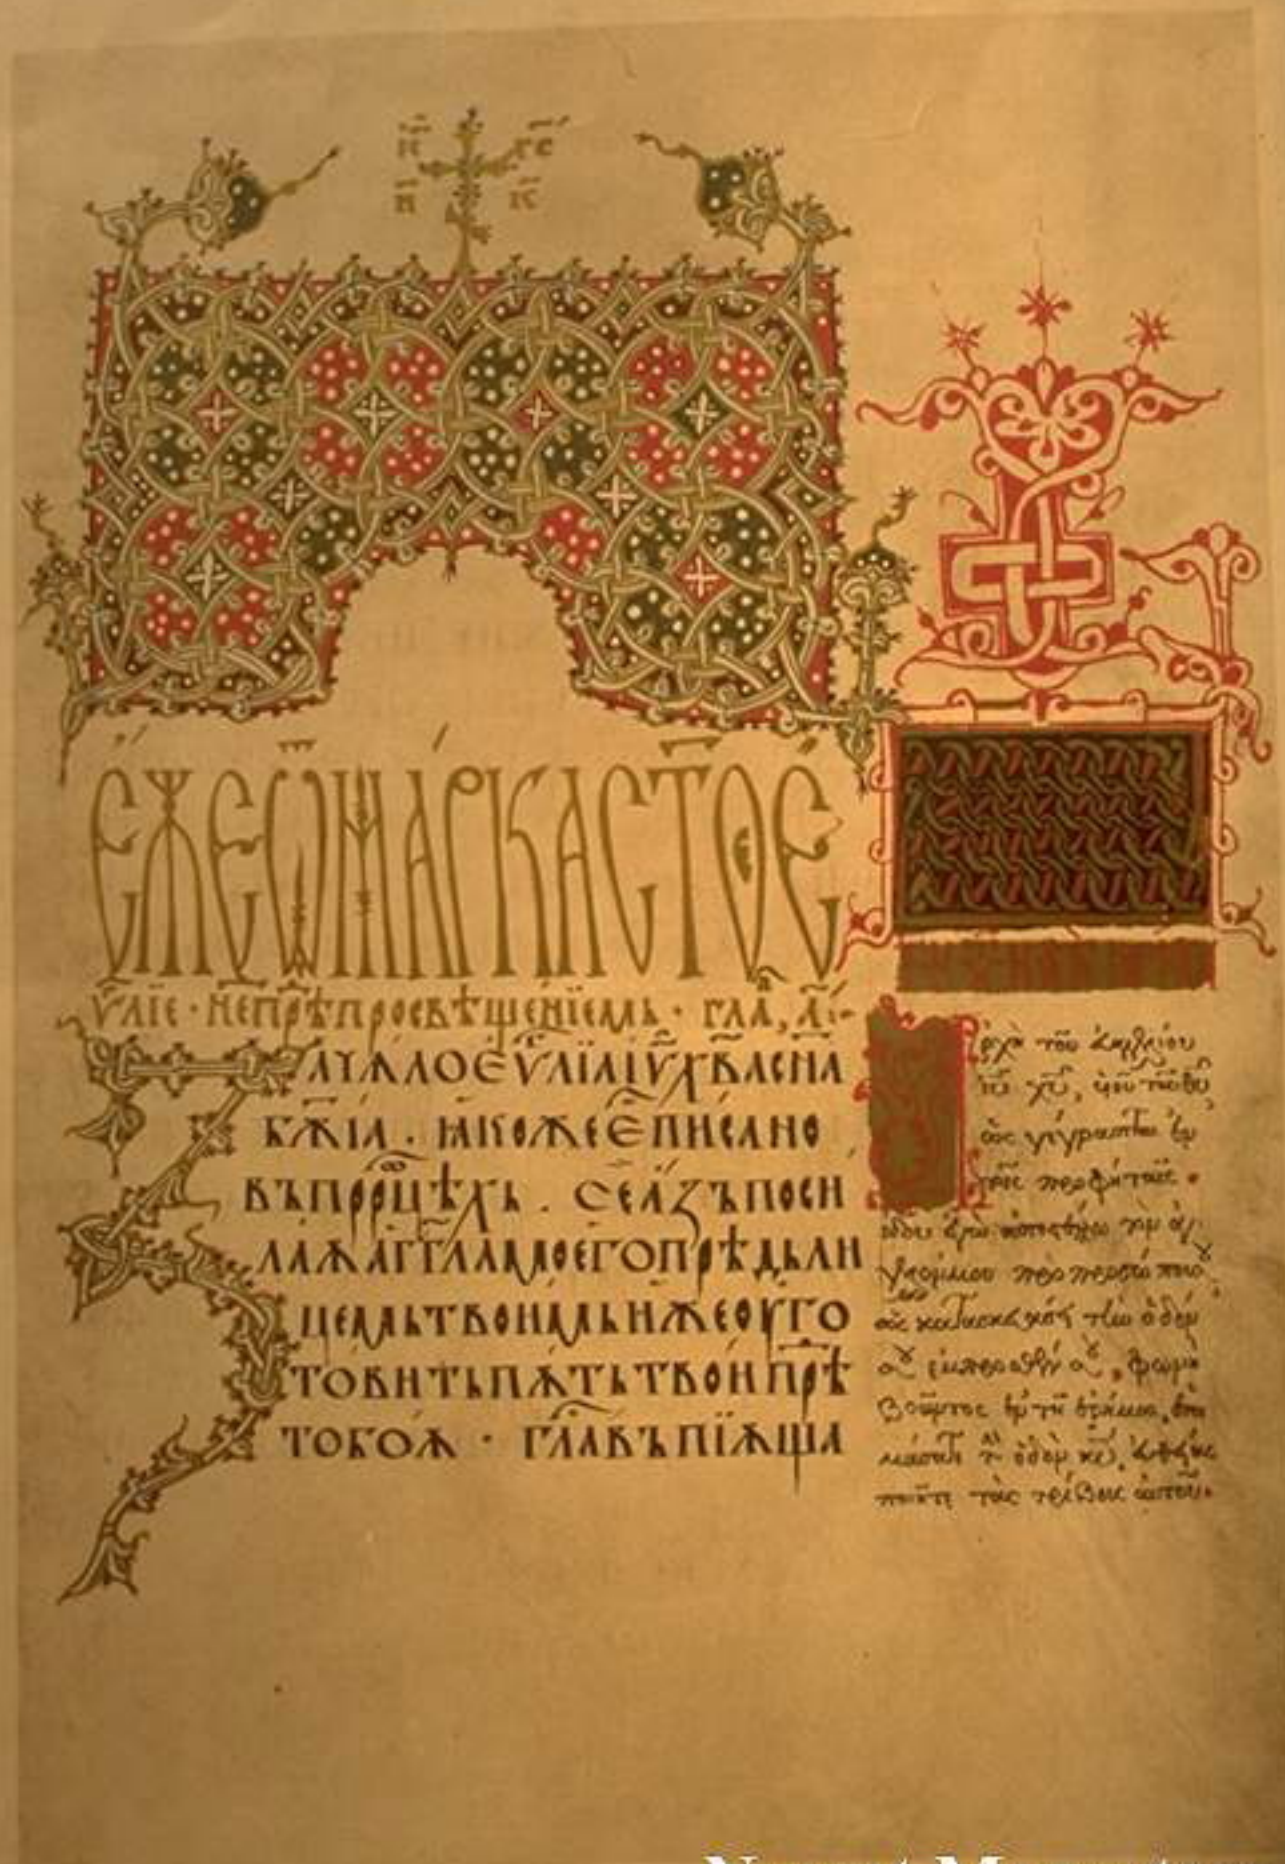 ЕЖЕ Ѿ МАРКА СТОЕ
ЕѴЛІЕ · И҆ЕПРѢПРОСВѢЩЕНІЕМЬ · ГЛА, А҃
ЗАЧѦЛО ЕѴЛІА ІѴ ХВА СНА
БЖІА · ꙖКОЖЕ Е ПИСАНО
ВЪ ПРРЦѢХЬ · СЕ АЗЪ ПОСИ
ЛАѪ АГГЛА МОЕГО ПРѢДЬ ЛИ
ЦЕМЬ ТВОИМЬ ИЖЕ ОУГО
ТОВИТЬ ПѪТЬ ТВОИ ПРѢ
ТОБОѪ · ГЛАВЪ ПІѪЩА
ρχὴ τοῦ
ιῦ χῦ, ὑοῦ τοῦ θῦ
ὡς γέγραπται ἐν
τοῖς προφήταις ·
ἰδοὺ ἐγὼ ἀποστέλλω τὸν ἄγ
γελόν μου πρὸ προσώπου
ὃς κατασκευάσει τὴν ὁδόν
ἔμπροσθέν φωνὴ
βοῶντος ἐν τῇ ἐρήμω, ἑτοι
μάσατε τὴν ὁδὸν κῦ, εὐθείας
ποιεῖτε τὰς τρίβους αὐτοῦ ·